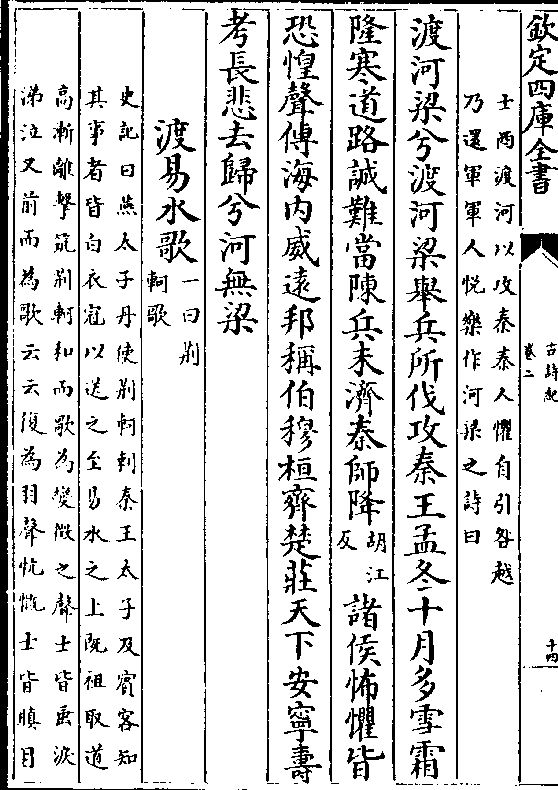 欽定四庫全書
古詩紀
卷二
十四
士西渡河以攻秦秦人懼自引咎越
乃還軍軍人悦樂作河梁之詩曰
渡河梁兮渡河梁舉兵所伐攻秦王孟冬十月多雪霜
隆寒道路誠難當陳兵未濟秦師降胡江反諸侯怖懼皆
恐惶聲傳海内威遠邦稱伯穆桓齊楚莊天下安寧夀
考長悲去歸兮河無梁
渡易水歌一曰荆軻歌
史記曰燕太子丹使荆軻刺秦王太子及賓客知
其事者皆白衣冠以送之至易水之上既祖取道
高漸離擊筑荆軻和而歌為變徴之聲士皆垂淚
涕泣又前而為歌云云復為羽聲忼慨士皆瞋目